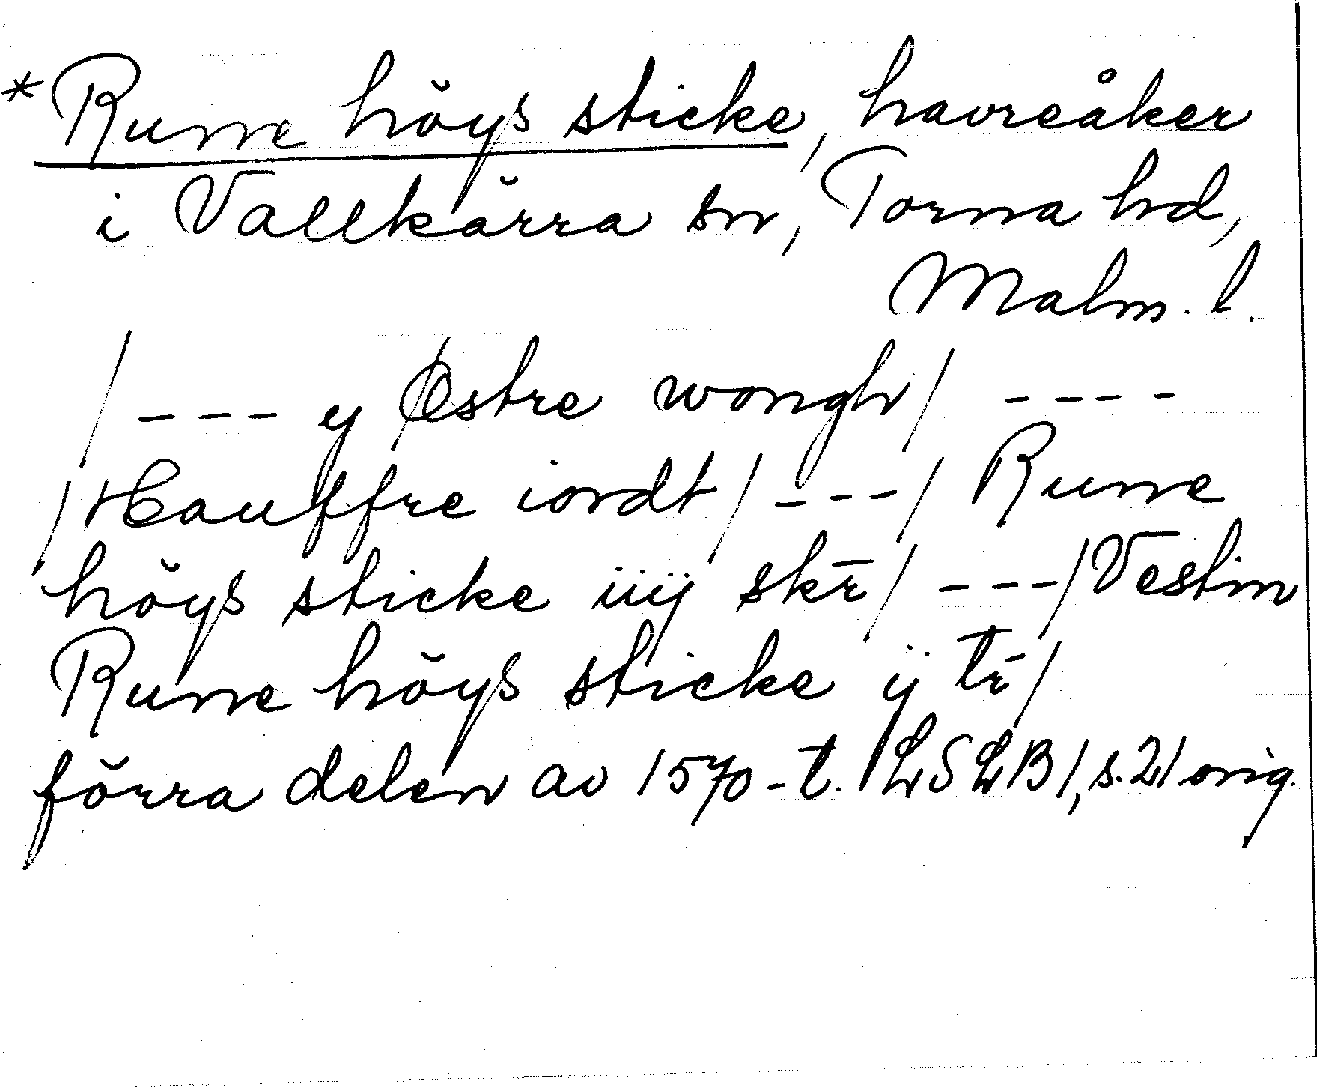 *Runne höys sticke, havreåker
i Vallkärra sn, Torna hd,
Malm. l.
/ --- y Østre wongh/ ----
/Hauffre iordt/ ---/ Runne
höys sticke iiij skē/ ---/Vestin
Runne höys sticke ij tr̄/
förra delen av 1570-t. LSLB1, s. 21 orig.